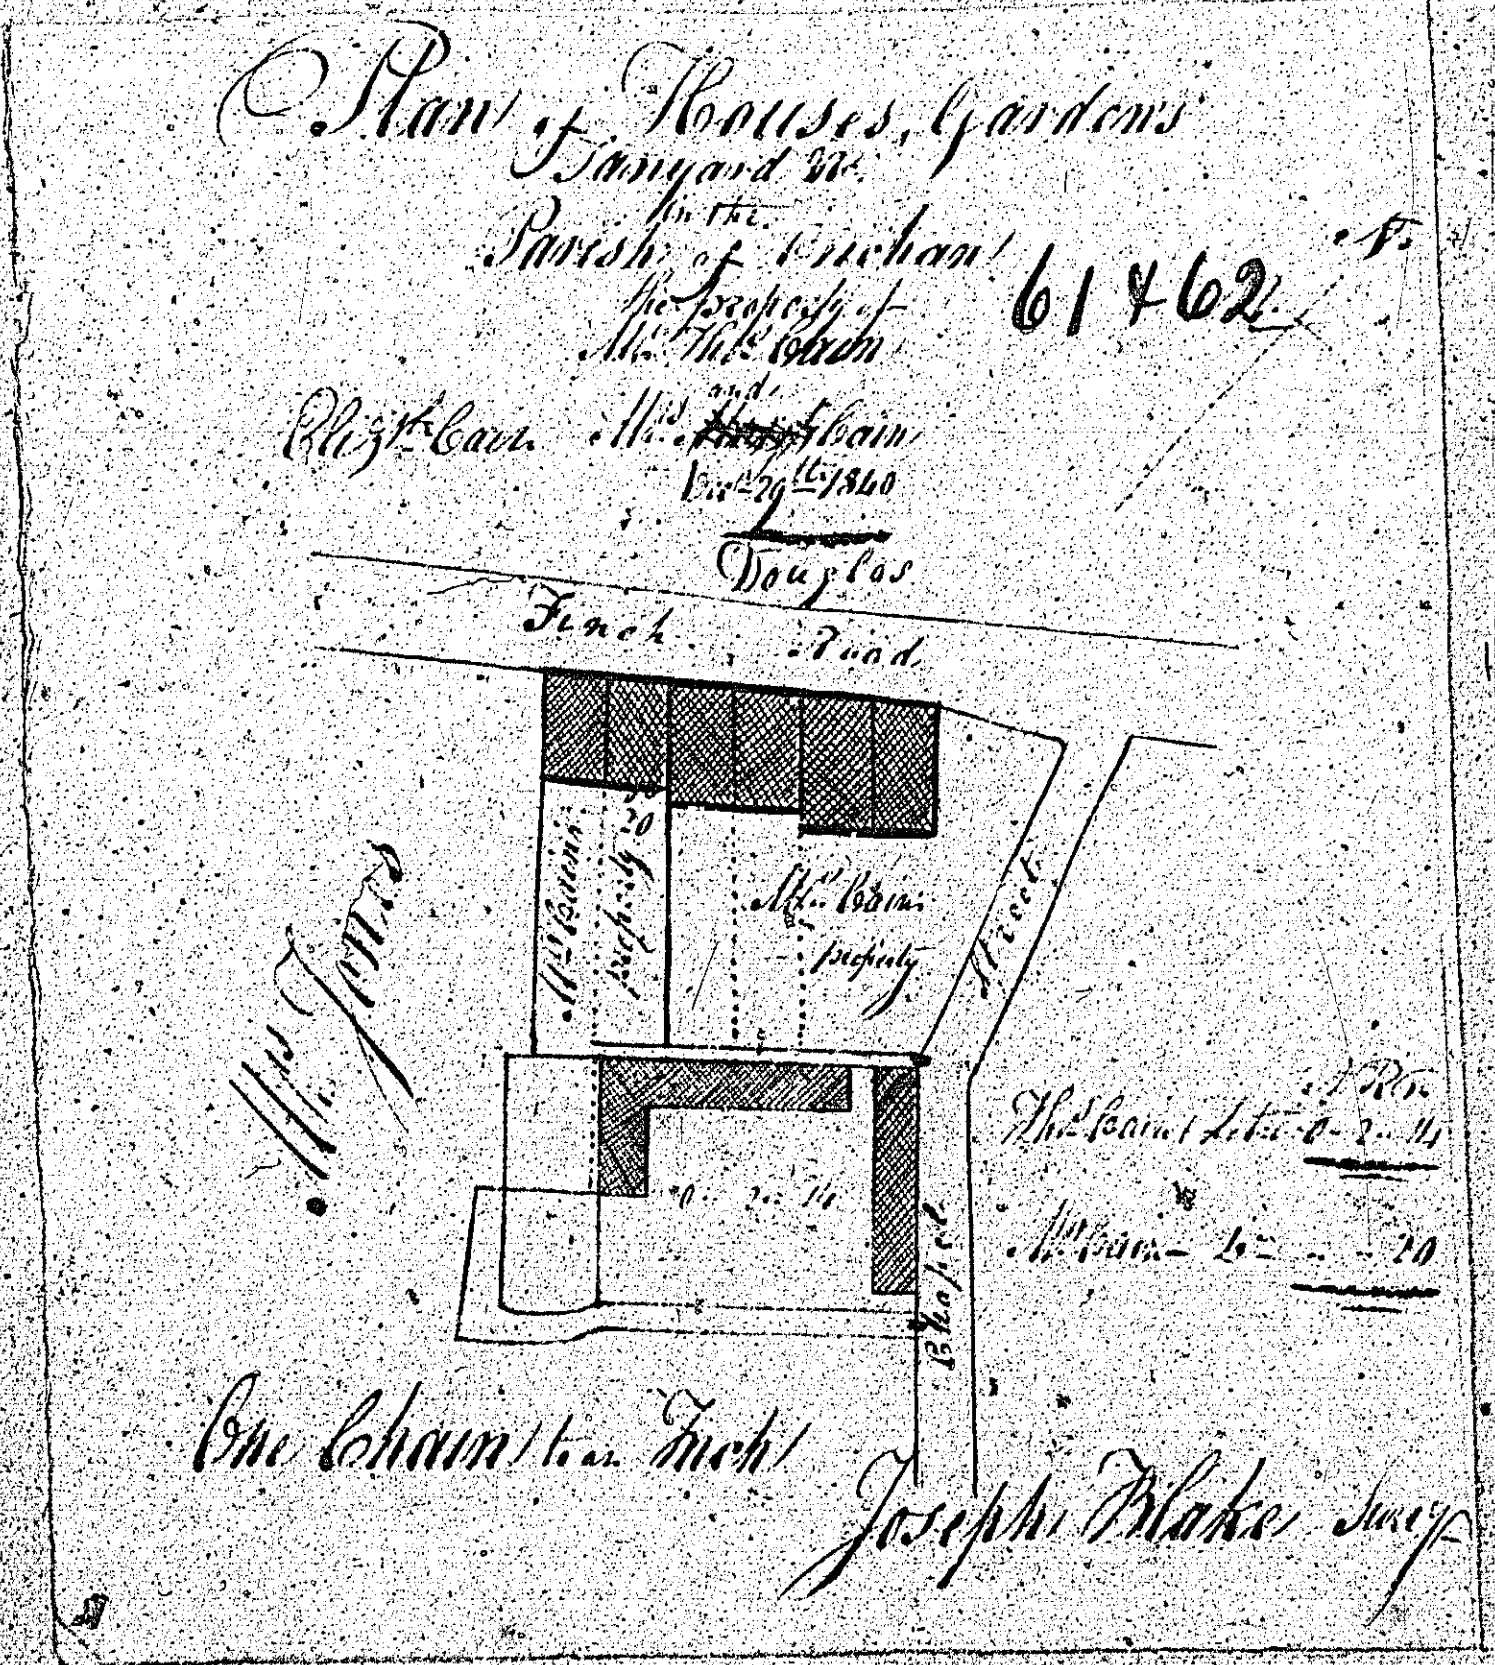 Plan of Houses, Gardens
Tanyard &c.
in the
Parish of Onchan
the property of
Mr. Thos. Cain
and
Mrs. Cain
Elizth. Cain
Decr. 29th 1840
61 & 62
Douglas
Finch Road
Mrs. Cains
property
20
Mr. Cains
property
Street
Mrs.
0 - 2 - 14
Chapel
A R P
Thos. Cains Lot = 0 - 2 - 14
Mrs. Cain - Do = - - 20
One Chain to an Inch
Joseph Blake Survyr